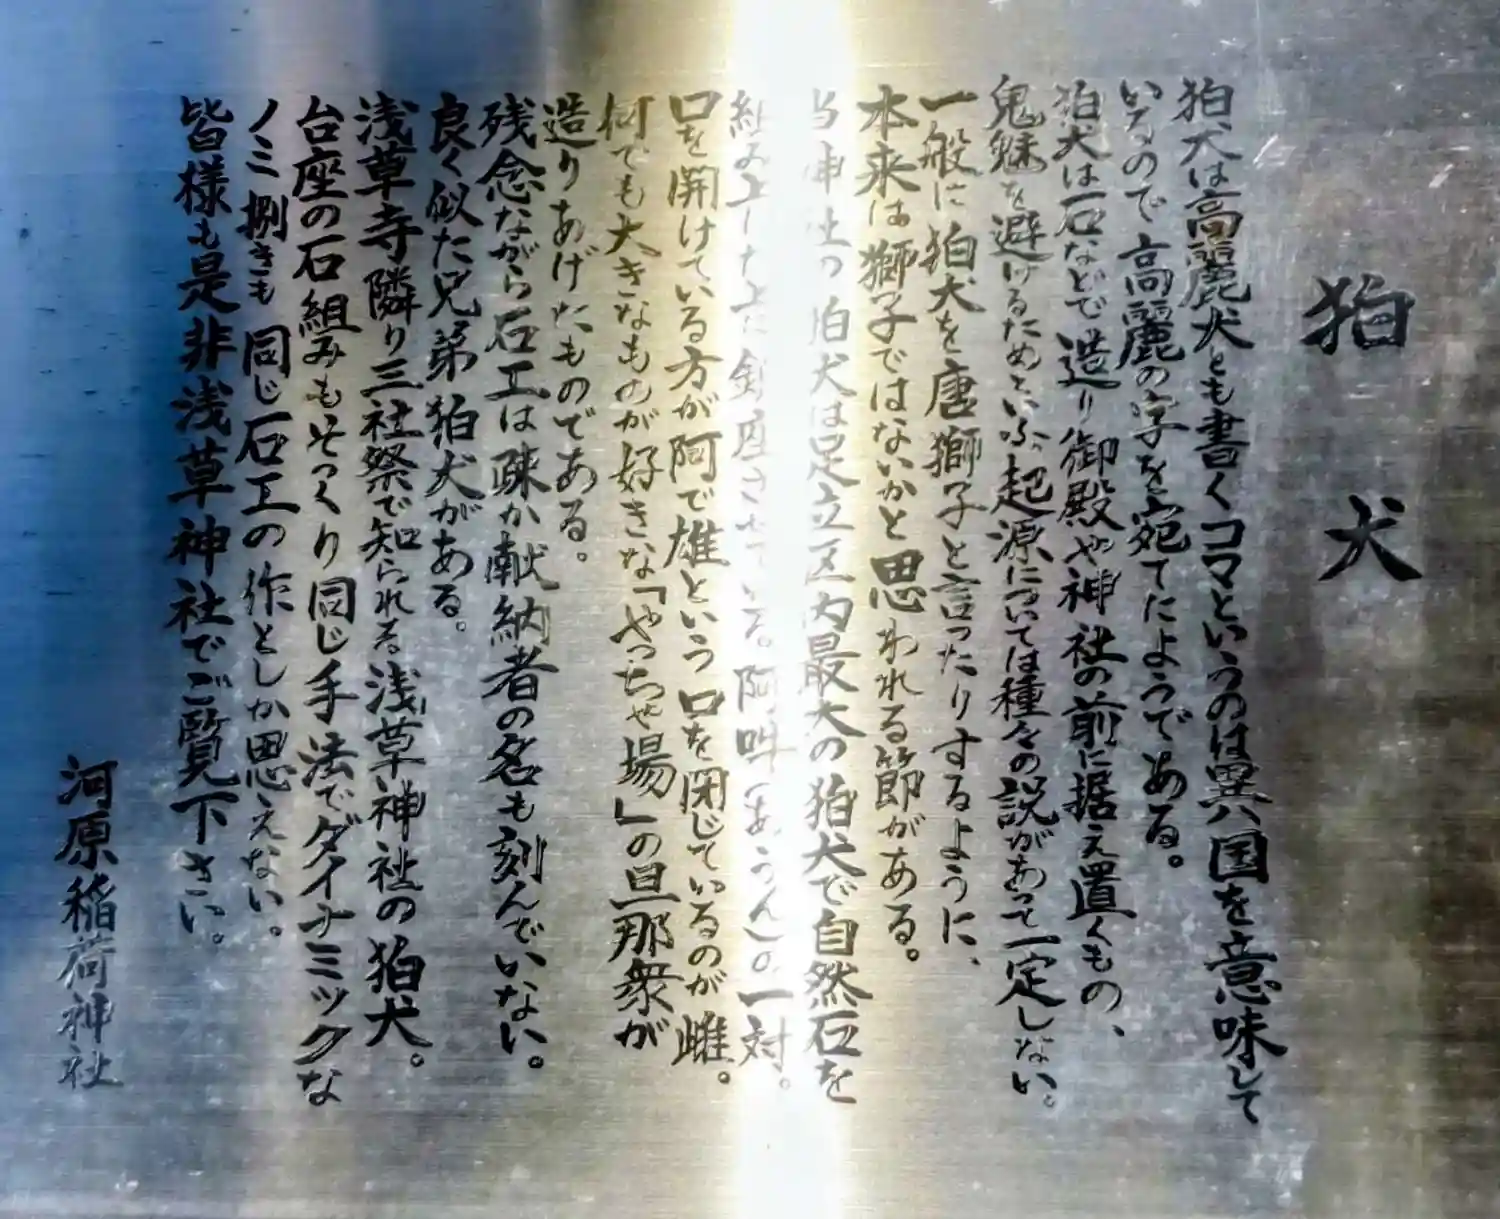 狛犬
狛犬は高麗犬とも書くコマというのは異国を意味して
いるので高麗の字を宛てたようである。
狛犬は石などで造り御殿や神社の前に据え置くもの、
鬼魅を避けるためという起源については種々の説があって一定しない。
一般に狛犬を唐獅子と言ったりするように、
本来は獅子ではないかと思われる節がある。
当神社の狛犬は足立区内最大の狛犬で自然石を
組み上した上に鎮座させている。阿吽(あうん)の一対。
口を開けている方が阿で雄という口を閉じているのが雌。
何でも大きなものが好きな「やっちゃ場」の旦那衆が
造りあげたものである。
残念ながら石工は疎か献納者の名も刻んでいない。
良く似た兄弟狛犬がある。
浅草寺隣り三社祭で知られる浅草神社の狛犬。
台座の石組みもそっくり同じ手法でダイナミックな
ノミ捌きも同じ石工の作としか思えない。
皆様も是非浅草神社でご覧下さい。
河原稲荷神社